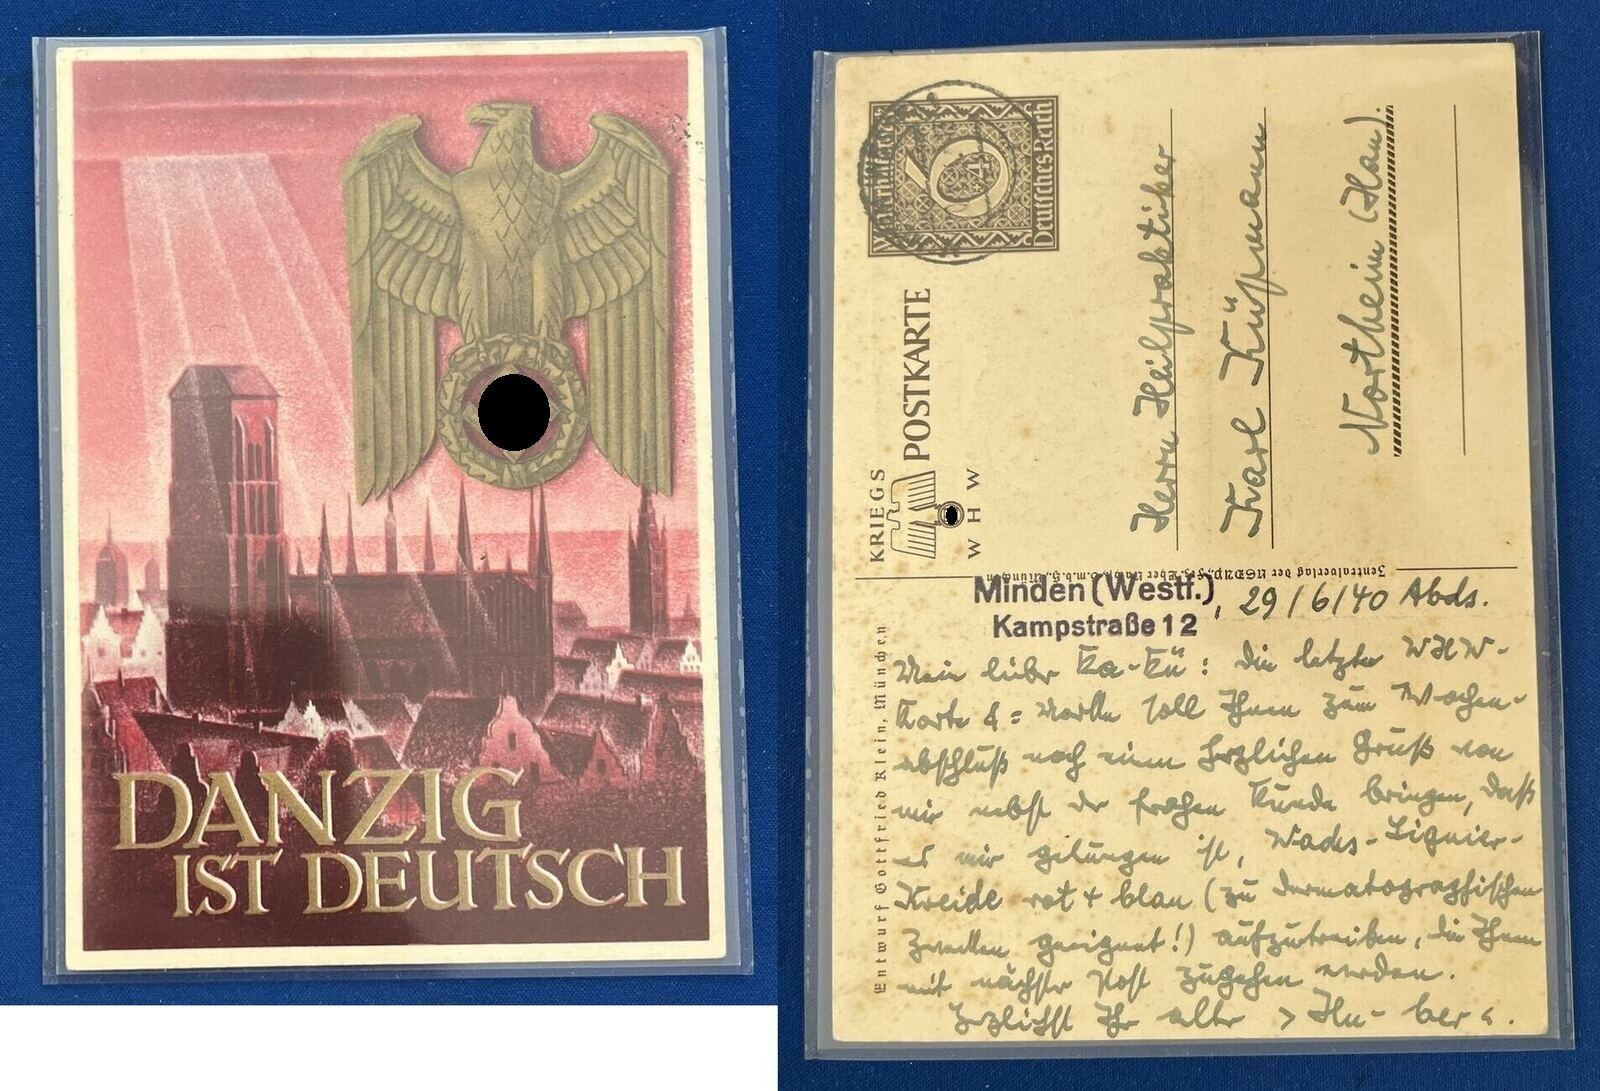 DANZIG
IST DEUTSCH
Winterhilfswerk
6+4
Deutsches Reich
KRIEGS
POSTKARTE
W H W
Herrn Heilpraktiker
Karl Küpmann
Northeim (Han).
Zentralverlag der NSDAP., Frz. Eher Nachf. G.m.b.H., München
Entwurf Gottfried Klein, München
Minden (Westf.)
Kampstraße 12
, 29/6/40 Abds.
Mein lieber Ka-Kü: Die letzte WHW-
Karte &= Marke soll Ihnen zum Wochen-
abschluß noch einen herzlichen Gruß von
mir nebst der frohen Kunde bringen, daß
es mir gelungen ist, Signier-
Kreide rot + blau (zu dermatographischen
Zwecken geeignet!) aufzutreiben, die Ihnen
mit nächster Post zugehen werden.
Herzlichst Ihr alter > Hu-ber <.